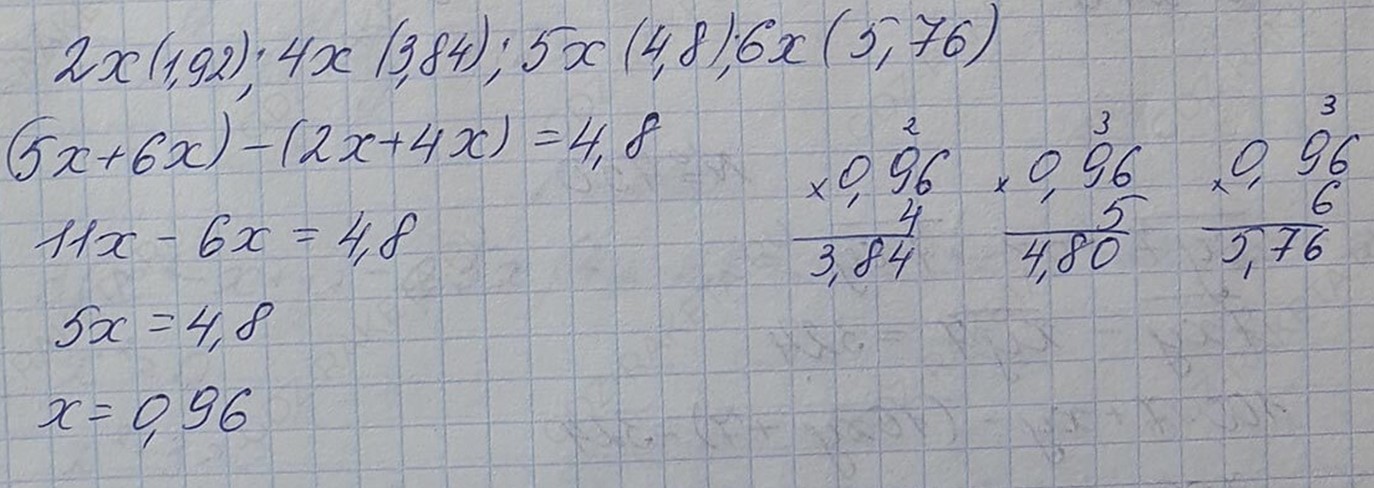 2x(1,92); 4x (3,84); 5x (4,8); 6x (5,76)
(5x+6x)-(2x+4x)=4,8
11x - 6x = 4,8
5x = 4,8
x = 0,96
2
× 0,96
4
3,84
3
× 0,96
5
4,80
3
× 0,96
6
5,76